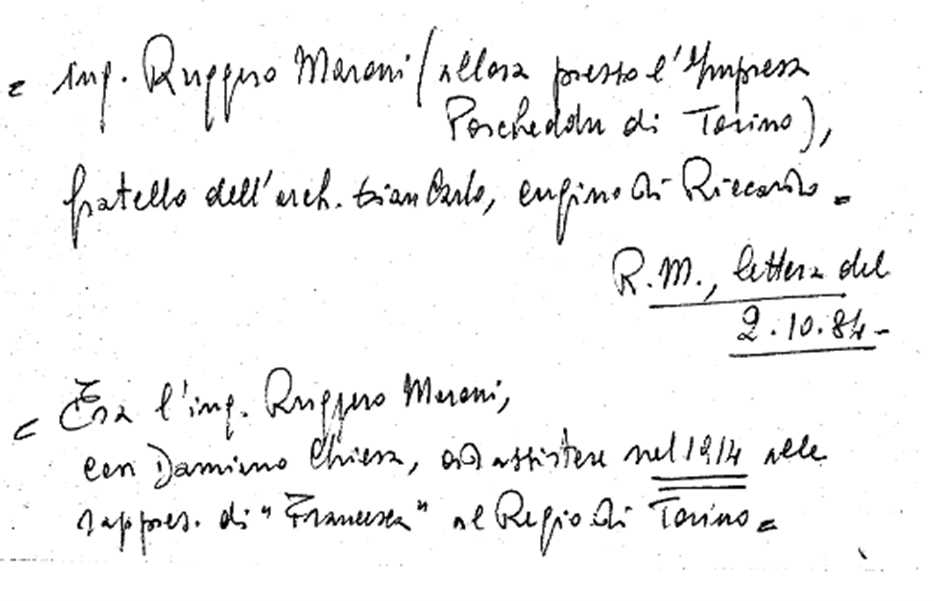 = ing. Ruggero Maroni (allora presso l'Impresa
Porcheddu di Torino),
fratello dell'arch. Gian Carlo, cugino di Riccardo =
R.M., lettera del
2.10.84 -
= Era l'ing. Ruggero Maroni,
con Damiano Chiesa, ad assistere nel 1914 alla
rappres. di "Francesca" al Regio di Torino =